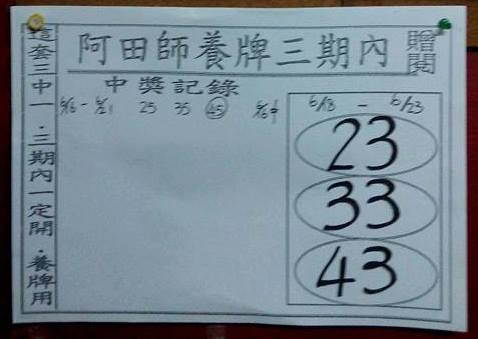 阿田師養牌三期內
贈閱
這套三中一．三期內一定開．養牌用
中獎記錄
25 35 45
6/13 - 6/23
23
33
43